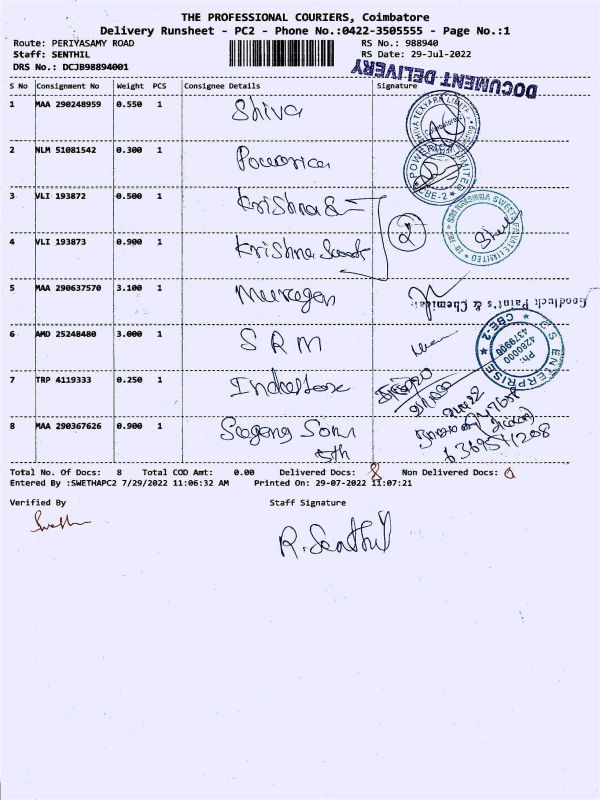 THE PROFESSIONAL COURIERS, Coimbatore
Delivery Runsheet - PC2 - Phone No.:0422-3505555 - Page No.:1
Route: PERIYASAMY ROAD RS No.: 988940
Staff: SENTHIL RS Date: 29-Jul-2022
DRS No.: DCJB98894001
DOCUMENT DELIVERY
S No Consignment No Weight PCS Consignee Details Signature
1 MAA 290248959 0.550 1 Shiva
2 NLM 51081542 0.300 1 Powerica
3 VLI 193872 0.500 1 Krishna S
4 VLI 193873 0.900 1 Krishna Sweet 2
5 MAA 290637570 3.100 1 Murugan
Goodluck Paint's & Chemicals
6 AMD 25248480 3.000 1 S R M
C S ENTERPRISE
CBE-2
Ph:
4280000
4379900
7 TRP 4119333 0.250 1
8 MAA 290367626 0.900 1
Total No. Of Docs: 8 Total COD Amt: 0.00 Delivered Docs: 8 Non Delivered Docs: 0
Entered By :SWETHAPC2 7/29/2022 11:06:32 AM Printed On: 29-07-2022 11:07:21
Verified By Staff Signature
Swetha
R. Senthil